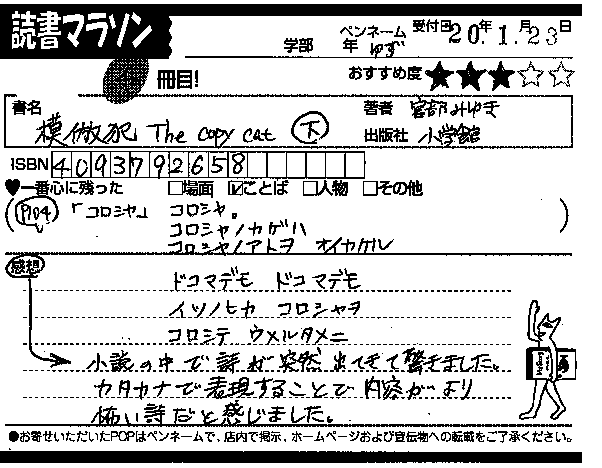 読書マラソン
学部 年 ペンネーム ゆず 受付日 20年1月23日
冊目! おすすめ度 ★★★☆☆
書名 模倣犯 The copy cat 下
著者 宮部みゆき
出版社 小学館
ISBN 4093792658
♥一番心に残った □場面 ☑ことば □人物 □その他
(P104 「コロシヤ」 コロシヤ。
コロシヤノカゲハ
コロシヤノアトヲ オイカケル )
感想
ドコマデモ ドコマデモ
イツノヒカ コロシヤヲ
コロシテ ウメルタメニ
小説の中で詩が突然出てきて驚きました。
カタカナで表現することで内容がより
怖い詩だと感じました。
●お寄せいただいたPOPはペンネームで、店内で掲示、ホームページおよび宣伝物への転載をご了承ください。